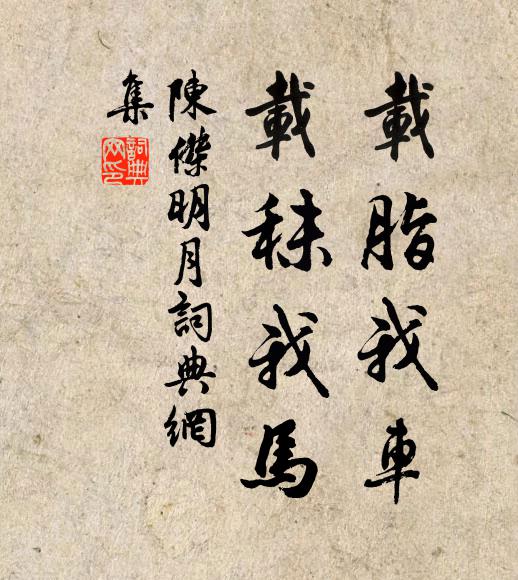 載脂我車
載秣我馬
陳傑明月詞典網
集
詞典
网印